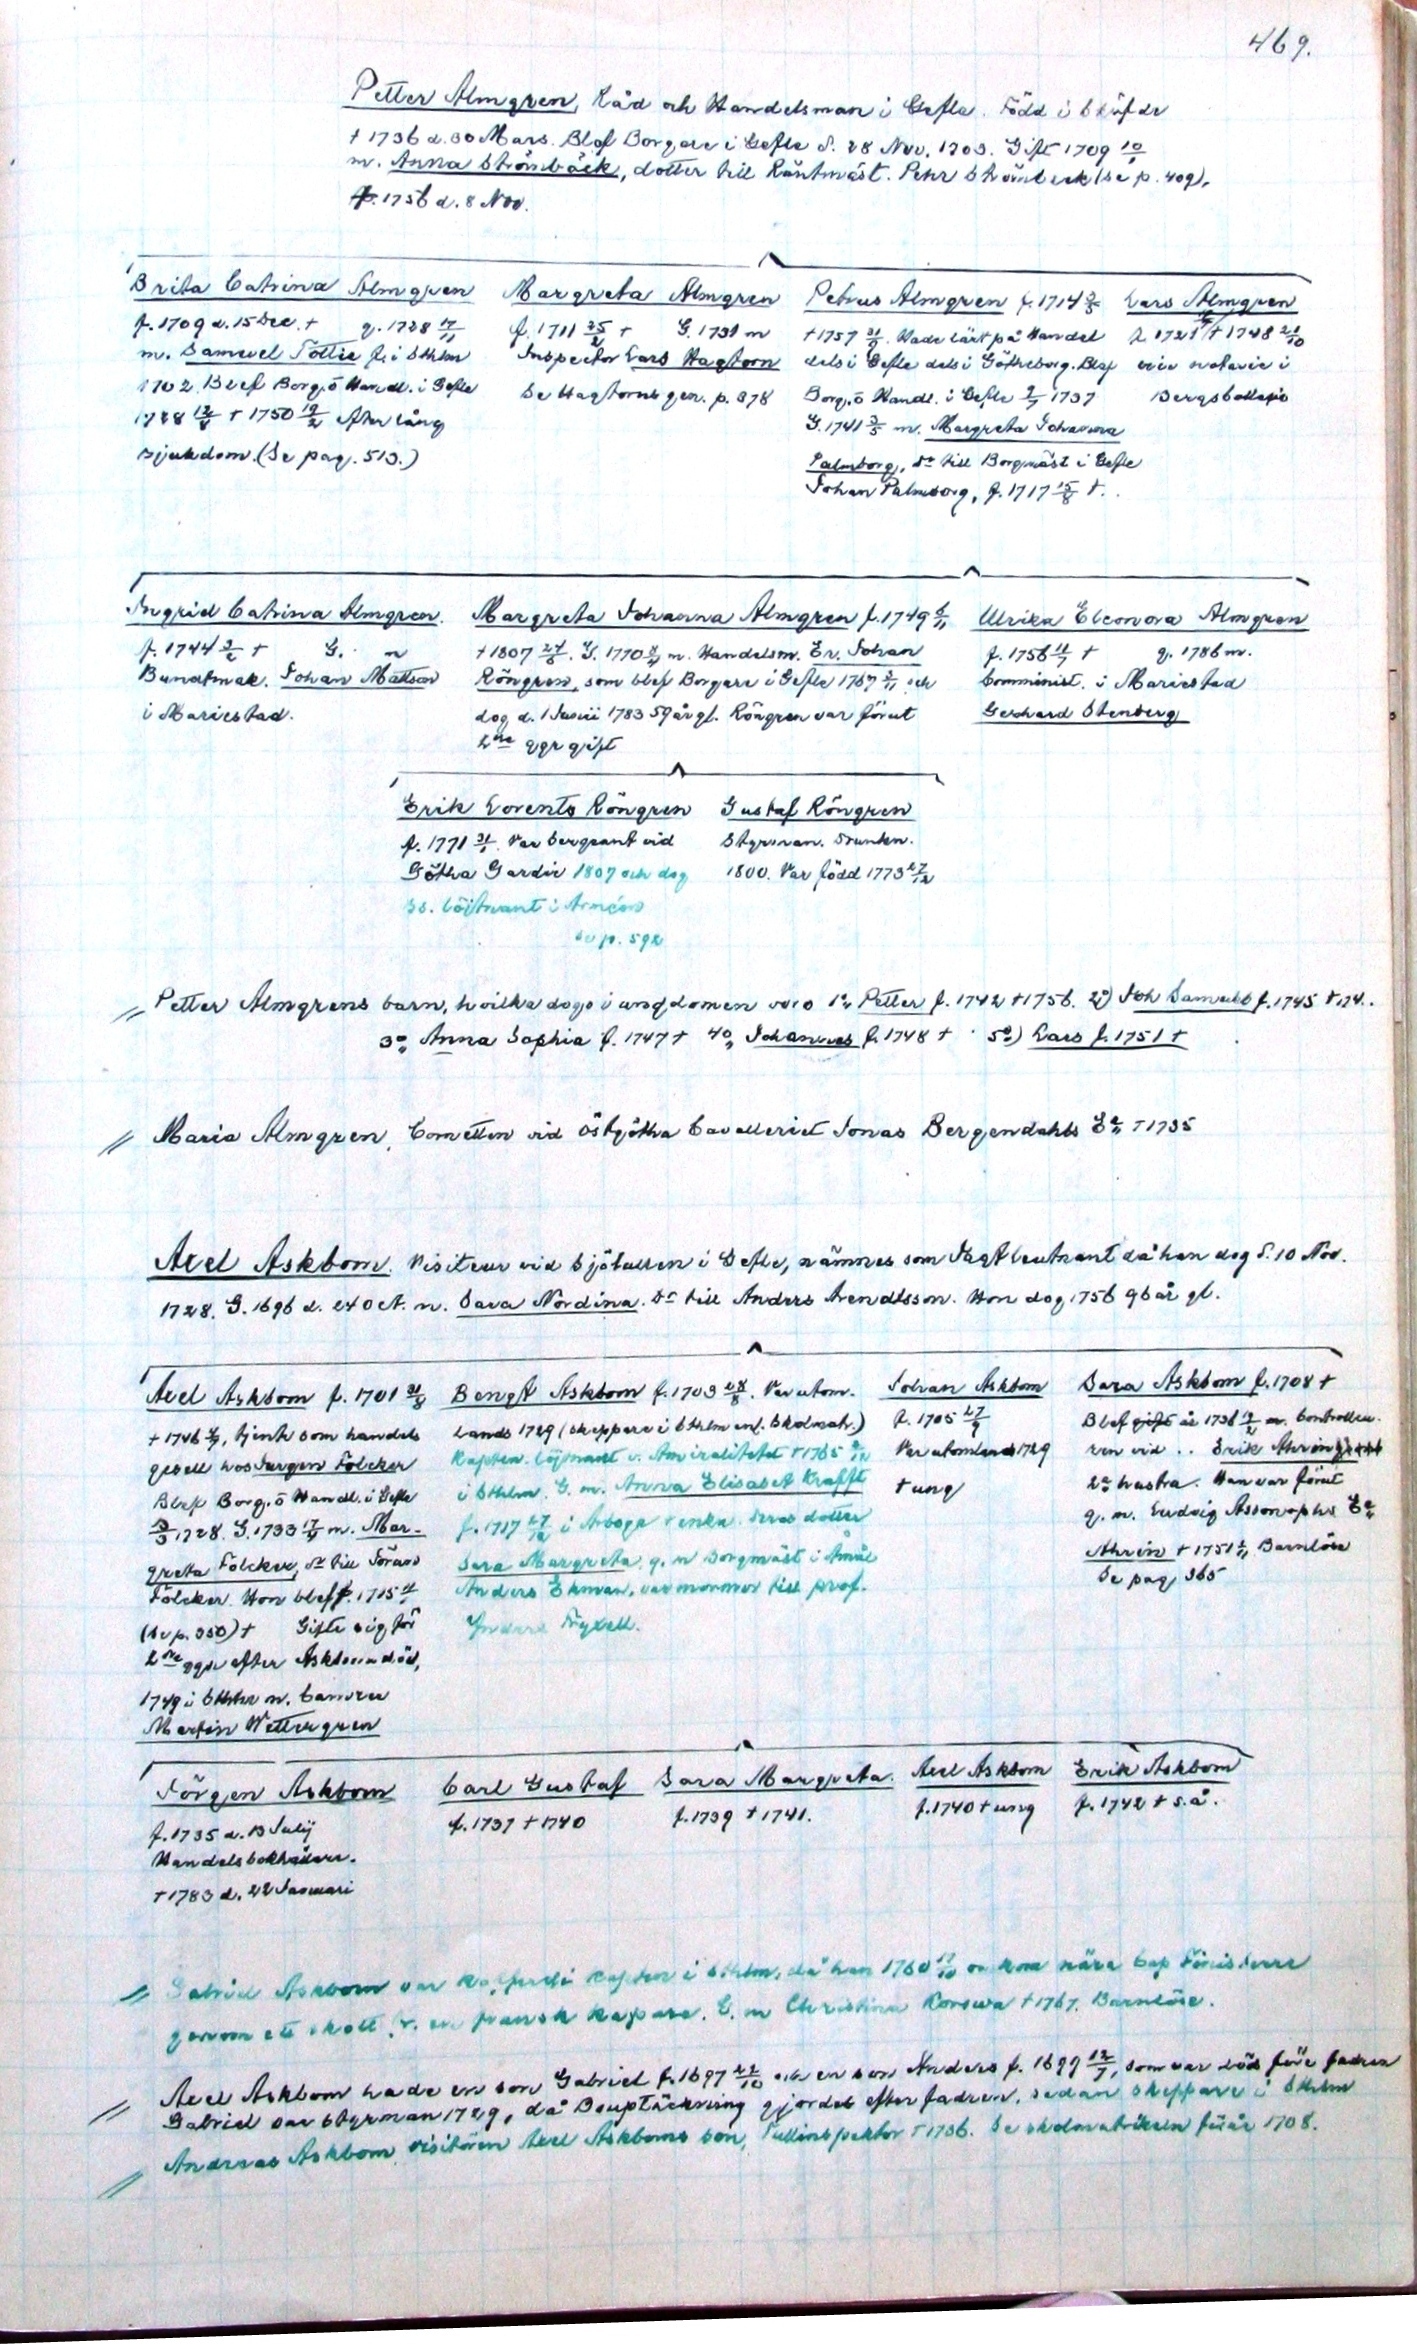 469.
Petter Almgren, Råd och Handelsman i Gefle. Född i Sköfde
† 1736 d. 30 Mars. Blef Borgare i Gefle d. 28 Nov. 1703. Gift 1709 10/1
m. Anna Strömbäck, dotter till Räntmäst. Pehr Strömbeck (se p. 409).
†. 1756 d. 8 Nov.
Brita Catrina Almgren
f. 1709 d. 15 Dec. † g. 1728 17/11
m. Samuel Tottie f. i Sthlm
1702. Blef Borg. ö Handl. i Gefle
1728 † 1750 19/2 efter lång
sjukdom. (Se pag. 513.)
Margreta Almgren
f. 1711 25/2 † G. 1731 m
Inspector Lars Hagtorn
Se Hagtorns gen. p. 378
Petrus Almgren f. 1714
† 1757. Hade lärt på Handel
dels i Gefle dels i Götheborg. Blef
Borg. ö Handl. i Gefle 1737
G. 1741 3/5 m. Margreta Johanna
Palmborg, dr till Borgmäst i Gefle
Johan Palmborg, f. 1717 15/8 †.
Lars Almgren
f. 1721 † 1748 21/10
vice notarie i
Bergskollegio
Ingrid Catrina Almgren.
f. 1744 † G. m
Buntmak. Johan Mattson
i Mariestad.
Margreta Johanna Almgren f. 1749
† 1807. G. 1770 m. Handelsm. Er. Johan
Röngren, som blef Borgare i Gefle 1767 och
dog d. 1 Junii 1783 59 år gl. Röngren var förut
2ne ggr gift
Ulrika Eleonora Almgren
f. 1756 11/7 † g. 1786 m.
Comminist. i Mariestad
Gerhard Stenberg
Erik Lorents Röngren
f. 1771 31/1. Var Sergeant vid
Götha Gardie 1807 och dog
ss. Löjtnant i Arméen
se p. 592
Gustaf Röngren
Styrman. Drunkn.
1800. Var född 1773 27/12
// Petter Almgrens barn, hvilka dogo i ungdomen voro 1o, Petter f. 1742 † 1756. 2o) Joh Samuel f. 1745 † 174..
3o, Anna Sophia f. 1747 † 4o, Johannes f. 1748 † 5o) Lars f. 1751 †
// Maria Almgren, Cornetten vid Östgötha Cavalleriet Jonas Bergendahls Ea, † 1735
Axel Askbom. Visiteur vid Sjötullen i Gefle, nämnes som leutnant då han dog d. 10 Nov.
1728. G. 1696 d. 24 Oct. m. Sara Nordina. dr till Anders Arendtsson. Hon dog 1756 96 år gl.
Axel Askbom f. 1701
† 1746, tjent som handels
gesell hos Jurgen Fölcker
Blef Borg. ö Handl. i Gefle
1728. G. 1733 m. Mar-
greta Fölcker, dr till Jöran
Fölcker. Hon blef f. 1715
(se p. 350) † Gifte sig för
2dra ggn efter Askboms död,
1749 i Sthlm m. Camrer
Martin Wettergren
Bengt Askbom f. 1703 28/8. Var utom-
lands 1729 (skeppare i Sthlm enl. Skolmatr.)
Kapten Löjtnant v. Amiralitetet † 1765
i Sthlm. G. m. Anna Elisabet Krafft
f. 1717 27/12 i Arboga. Deras dotter
Sara Margreta g. m Borgmäst i Åmål
Anders Ekman, var mormor till prof.
Anders Fryxell.
Johan Askbom
f. 1705 27/9
Var utomlands 1729
† ung
Sara Askbom f. 1708 †
Blef gift år 1736 m. Controlleu-
ren vid .. Erik Ahrin
2a hustru. Han var förut
g. m. Ludvig Assonophs Ea,
Ahrin † 1751 Barnlöse
Se pag 365
Jörgen Askbom
f. 1735 d. 13 Julij
Handelsbokhållare.
† 1783 d. 22 Januari
Carl Gustaf
f. 1737 † 1740
Sara Margreta.
f. 1739 † 1741.
Axel Askbom
f. 1740 † ung
Erik Askbom
f. 1742 † s.å.
// Gabriel Askbom var Kofferdi kapten i Sthlm, då han 1760 omkom nära Cap Finisterre
genom ett skott fr. en fransk kapare. G. m Christina † 1767. Barnlöse.
// Axel Askbom hade en son Gabriel f. 1697 22/10 och en son Anders f. 1699 12/7, som var död före fadren
Gabriel var styrman 1729, då Bouptäckning gjordes efter fadren, sedan skeppare i Sthlm
// Andreas Askbom, visitören Axel Askboms son, Tullinspektor † 1736. Se skolmatrikeln för år 1708.